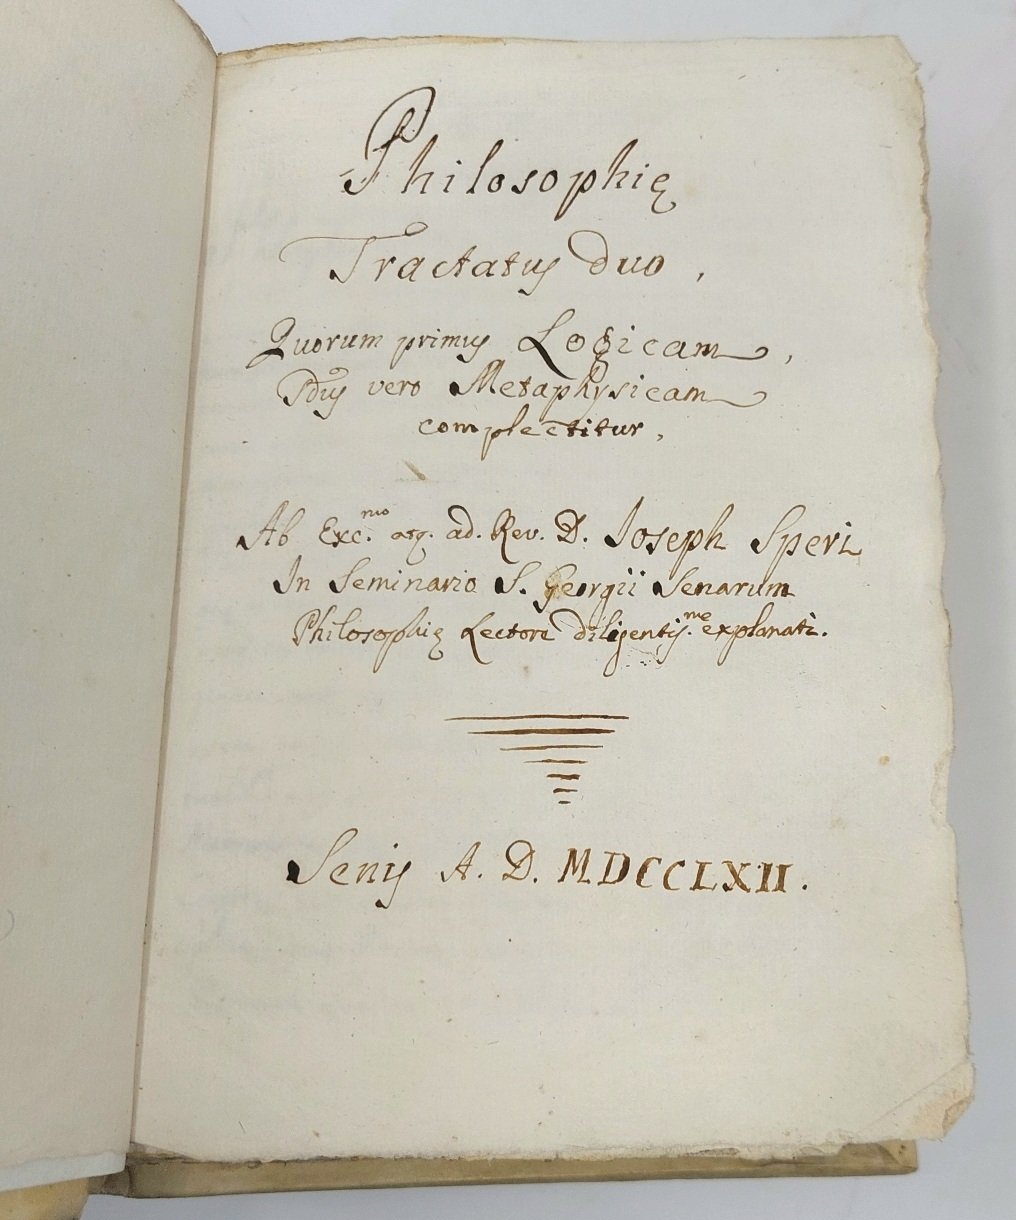 Philosophię
Tractatus duo,
Quorum primus Logicam,
2dus vero Metaphysicam
complectitur,
Ab Exc.mo atq. ad. Rev. D. Joseph Speri
In Seminario S. Georgii Senarum
Philosophię Lectore diligentis.me explanati.
Senis A. D. MDCCLXII.